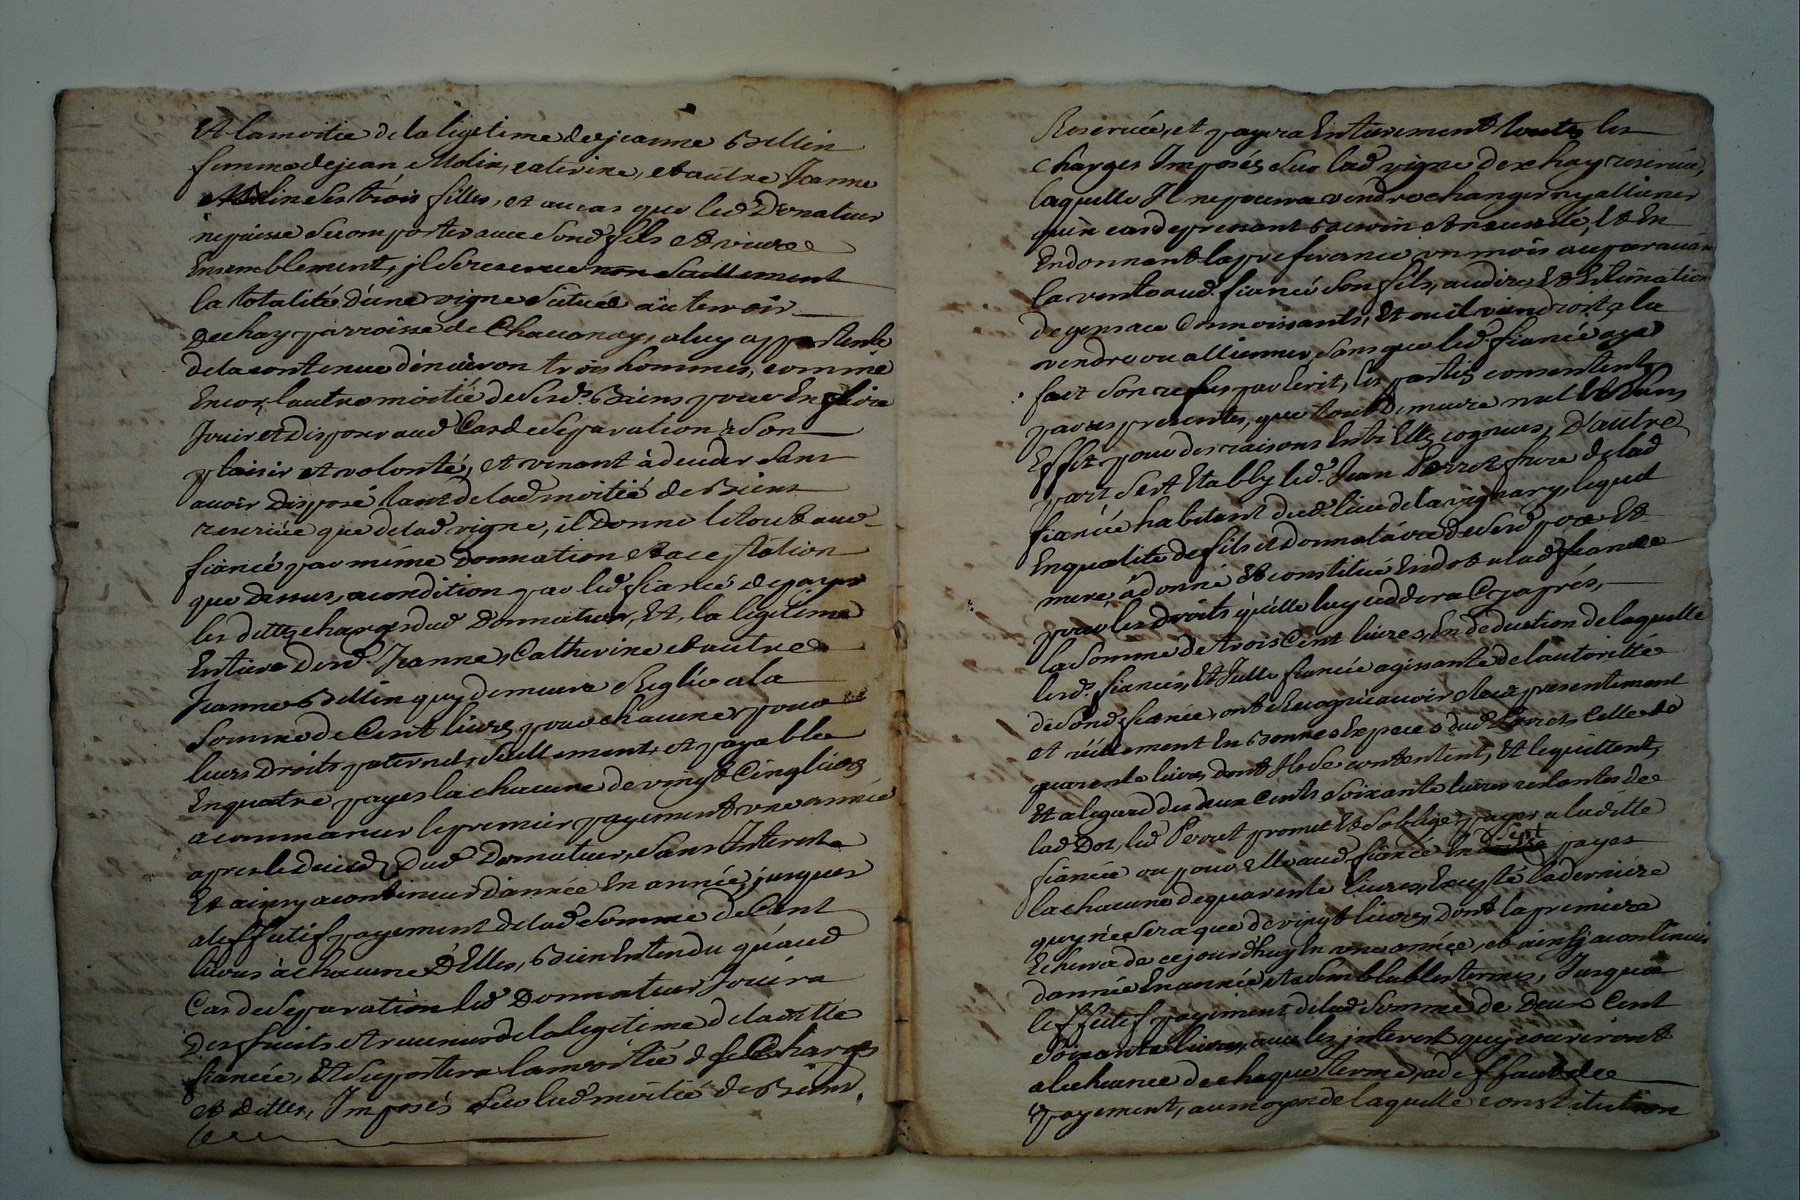 Et la moitie de la legitime de jeanne Bellin
femme de jean Molin, caterine, et autre Jeanne
Bellin ses trois filles, et au cas que led Donateur
ne puisse se comporter avec sond fils et vivre
Ensemblement, jl se reserve seullement
la totalité d'une vigne située au terroir
de chay parroisse de Chavanay, a luy appartenante
de la contenue d'environ trois hommes, comme
Encor, l'autre moitié de sesd. Biens pour En faire
Jouir et Disposer aud Cas de separation à son
plaisir et volonté, et venant à deceder sans
avoir Disposé tant de lad moitié de Biens
reservée que de lad vigne, il Donne le tout aud
fiancé par même Donnation et acceptation
que Dessus, a condition par led fiancé de payer
les dittes charges dud Donnateur, Et, la legitime
Entiere desd. Jeanne, Catherine et autre
Jeanne Bellin quy demeure Reglée a la
somme de Cent livres pour chacune pour
leurs Droits paternels seullement, et payable
En quatre payes la chacune de vingt Cinq livres
a commancer le premier payement une année
apres le deces Dud Donnateur, sans Interest
Et ainsy a continuer d'année En année, jusques
a l'effectif payement de lad somme de Cent
livres à chacune D'Elles, Bien Entendu qu'aud
Cas de separation led Donnateur Jouira
Des fruits et revenus de la legitime de laditte
fiancée, Et suportera la moitié desd Charges
et dettes, Imposés sur lad moitié de Biens
Reservée, et payera Entierement toutes les
Charges Imposés sur lad vigne de chay reservée,
laquelle Il ne pourra vendre changer ny alliener
qu'en cas de pressant Besoin et necessité, Et En
En donnant la preferance un mois auparavant
la vente aud. fiancé son fils, au dire Et Estimation
de gens a ce Connoissants, Et ou il viendroit a la
vendre ou alliener, sans que led. fiancé aye
fait son refus par Ecrit, les parties consentent
par ces presentes, que tout demeure nul Et sans
Effet pour des raisons Entr'Elles cognues, D'autre
part s'est Etably led. Jean Perret frere de lad
fiancée habitant dud. lieu de la vignary, lequel
En qualité de fils et Donnataire de sesd pere Et
mere, à donné Et constitué En dot a lad fiancée
pour les Droits qu'elle luy ceddera Cy apres,
la somme de trois Cent livres, En deduction de laquelle
lesd. fiancés, Et Jelle fiancée agissante de l'autorité
de sond fiancé, ont Recogneu avoir Receu presentement
et réellement En Bonnes Especes dud Perret, Celle de
quarente livres, dont Ils se contentent, Et le quittent,
Et a legard des deux Cents soixante livres restantes de
lad Dot, led Perret promet Et s'oblige payer a laditte
fiancée ou pour Elle aud. fiancé En sept payes
la chacune de quarente livres, Excepté la derniere
quy ne sera que de vingt livres, dont la premiere
Echerra de ce jourd'huy En une année, et ainsy a continuer
d'année En année, et a semblables termes, Jusqu'a
l'effectif payement de lad somme de Deux Cent
soixante livres, avec les interest quy courriront
a l'echeance de chaque terme, a deffaut de
payement, au moyen de laquelle constitution